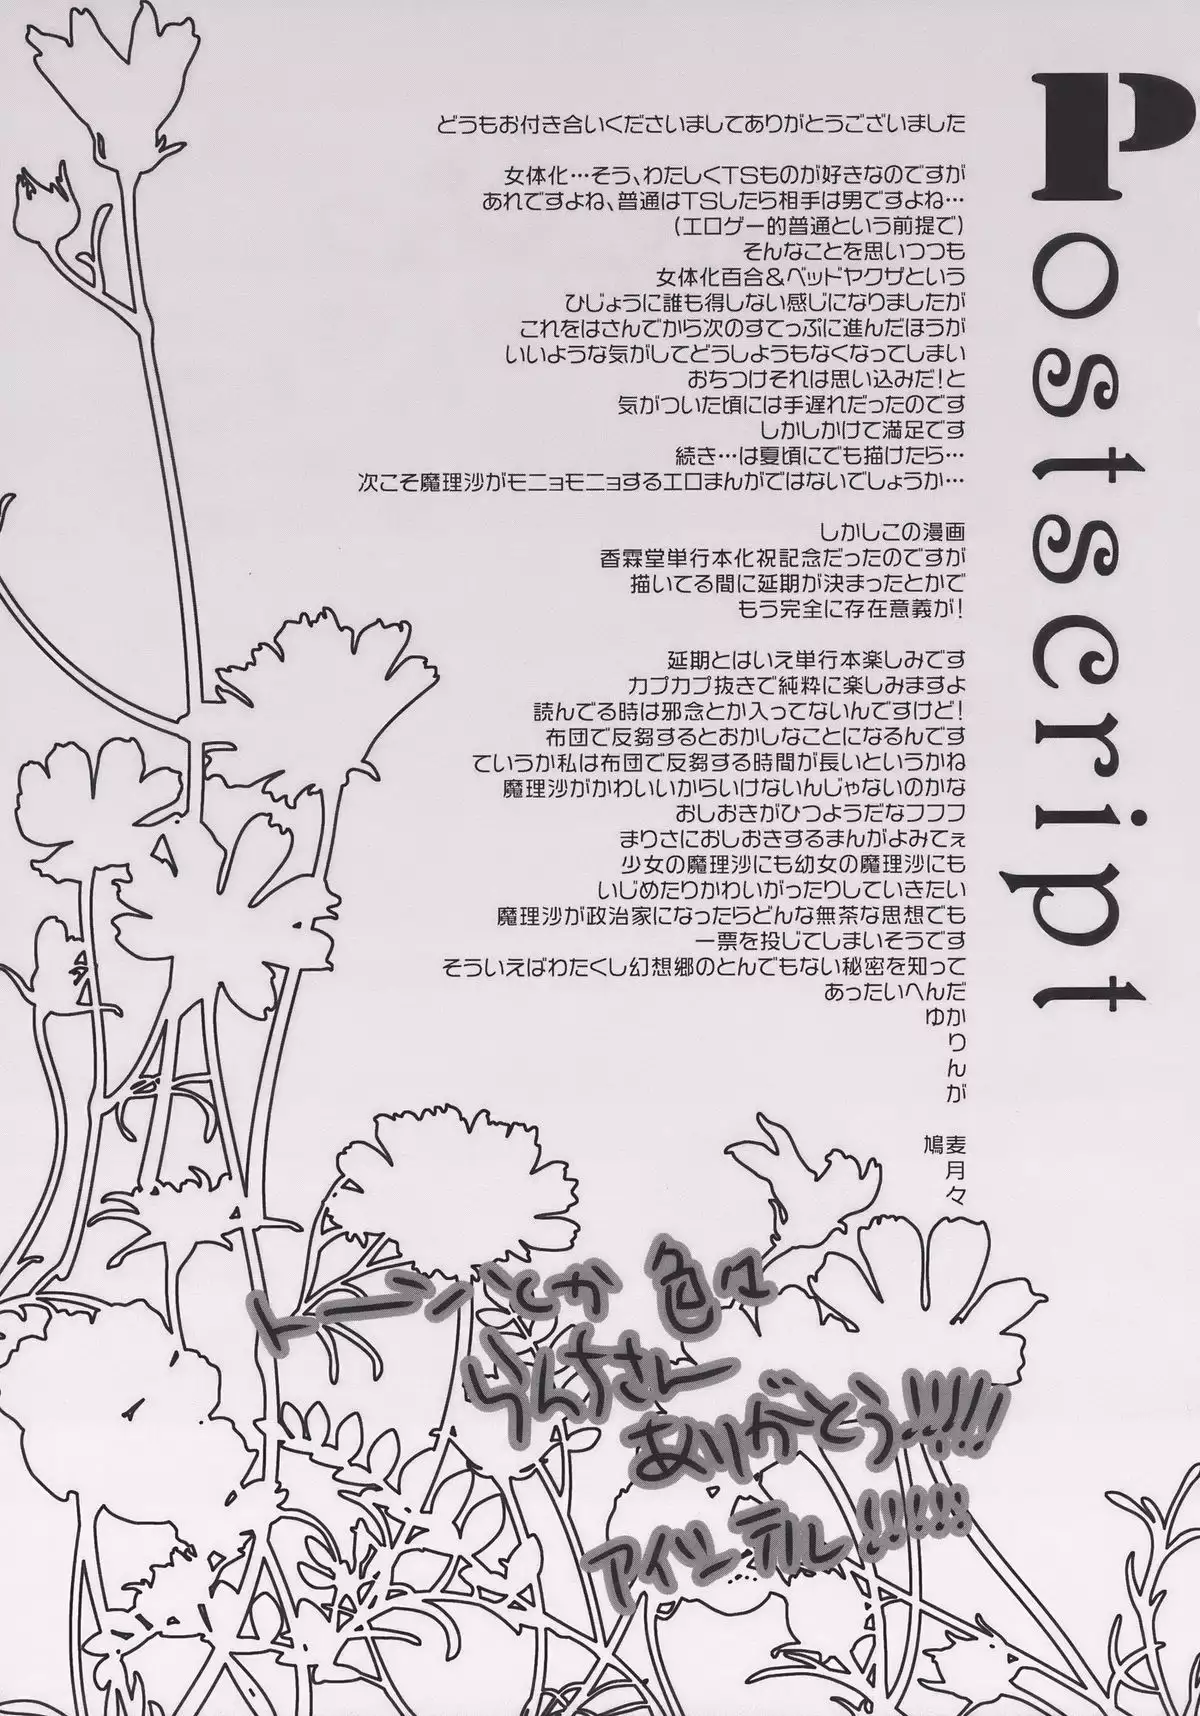 Postscript
どうもお付き合いくださいましてありがとうございました
女体化…そう、わたしくTSものが好きなのですが
あれですよね、普通はTSしたら相手は男ですよね…
(エロゲー的普通という前提で)
そんなことを思いつつも
女体化百合&ベッドヤクザという
ひじょうに誰も得しない感じになりましたが
これをはさんでから次のすてっぷに進んだほうが
いいような気がしてどうしようもなくなってしまい
おちつけそれは思い込みだ!と
気がついた頃には手遅れだったのです
しかしかけて満足です
続き…は夏頃にでも描けたら…
次こそ魔理沙がモニョモニョするエロまんがではないでしょうか…
しかしこの漫画
香霖堂単行本化祝記念だったのですが
描いてる間に延期が決まったとかで
もう完全に存在意義が!
延期とはいえ単行本楽しみです
カプカプ抜きで純粋に楽しみますよ
読んでる時は邪念とか入ってないんですけど!
布団で反芻するとおかしなことになるんです
ていうか私は布団で反芻する時間が長いというかね
魔理沙がかわいいからいけないんじゃないのかな
おしおきがひつようだなフフフ
まりさにおしおきするまんがよみてぇ
少女の魔理沙にも幼女の魔理沙にも
いじめたりかわいがったりしていきたい
魔理沙が政治家になったらどんな無茶な思想でも
一票を投じてしまいそうです
そういえばわたくし幻想郷のとんでもない秘密を知って
あったいへんだ
ゆか
り
ん
が
鳩麦
月
々
トーンとか 色々
らんちさん
ありがとう!!!!!
アイシテル!!!!!